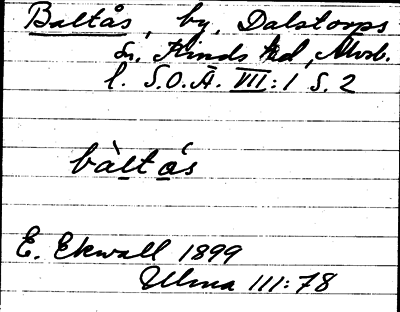 Baltås, by, Dalstorps
sn. Kinds hd, Älvsb.
l. S.O.Ä. VII:1 S. 2
bàltås
E. Ekwall 1899
Ulma 111:78